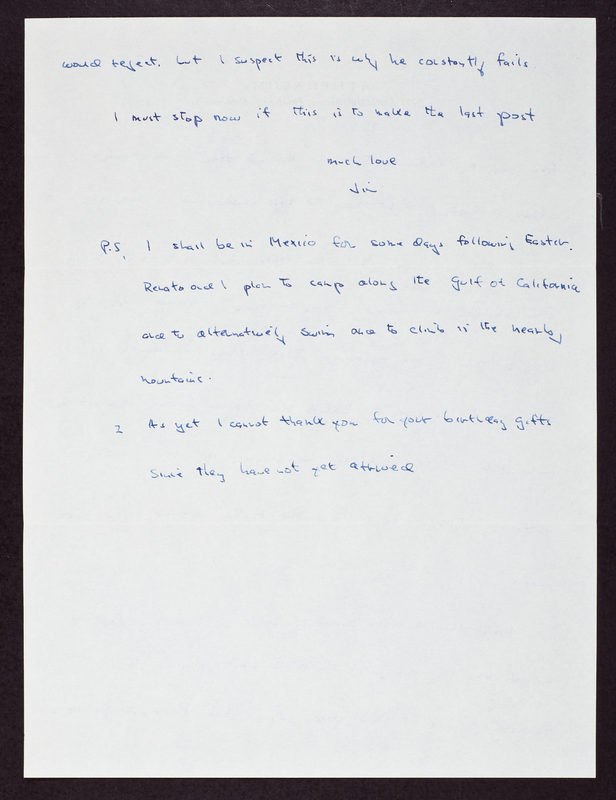 would reject. but I suspect this is why he constantly fails
I must stop now if this is to make the last post
much love
Jim
P.S, I shall be in Mexico for some days following Easter.
Renato and I plan to camp along the Gulf of California
and to alternatively swim and to climb in the nearby
mountains.
2 As yet I cannot thank you for your birthday gifts
since they have not yet arrived